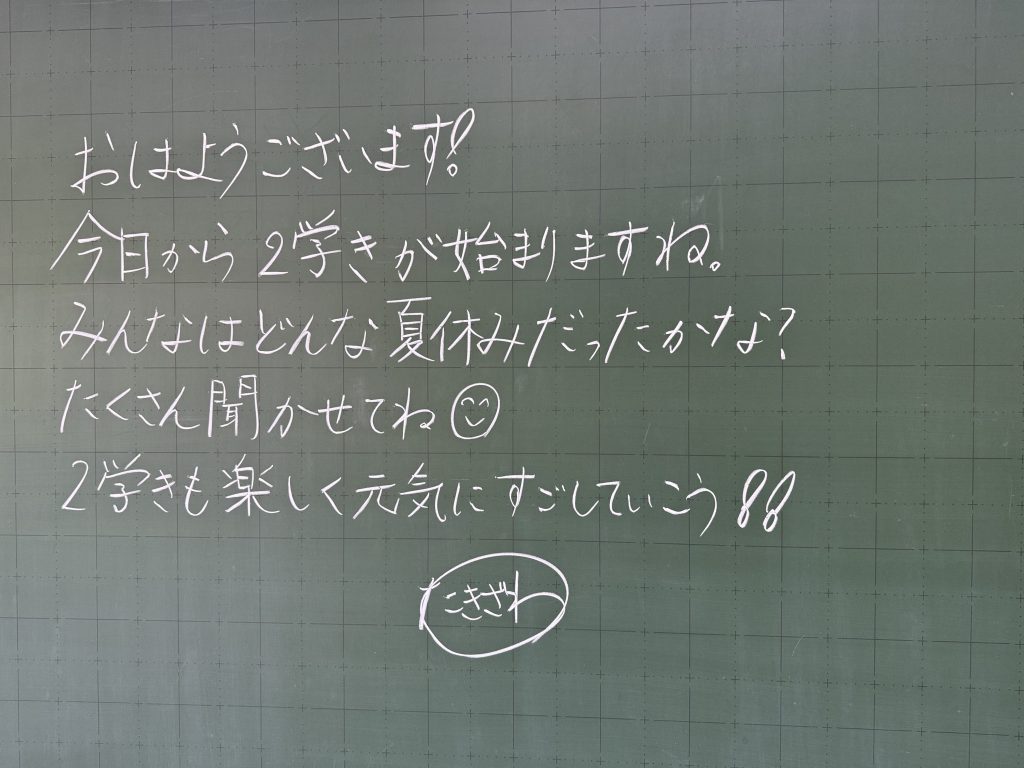 おはようございます!
今日から2学きが始まりますね。
みんなはどんな夏休みだったかな?
たくさん聞かせてね
2学きも楽しく元気にすごしていこう!!
たきざわ